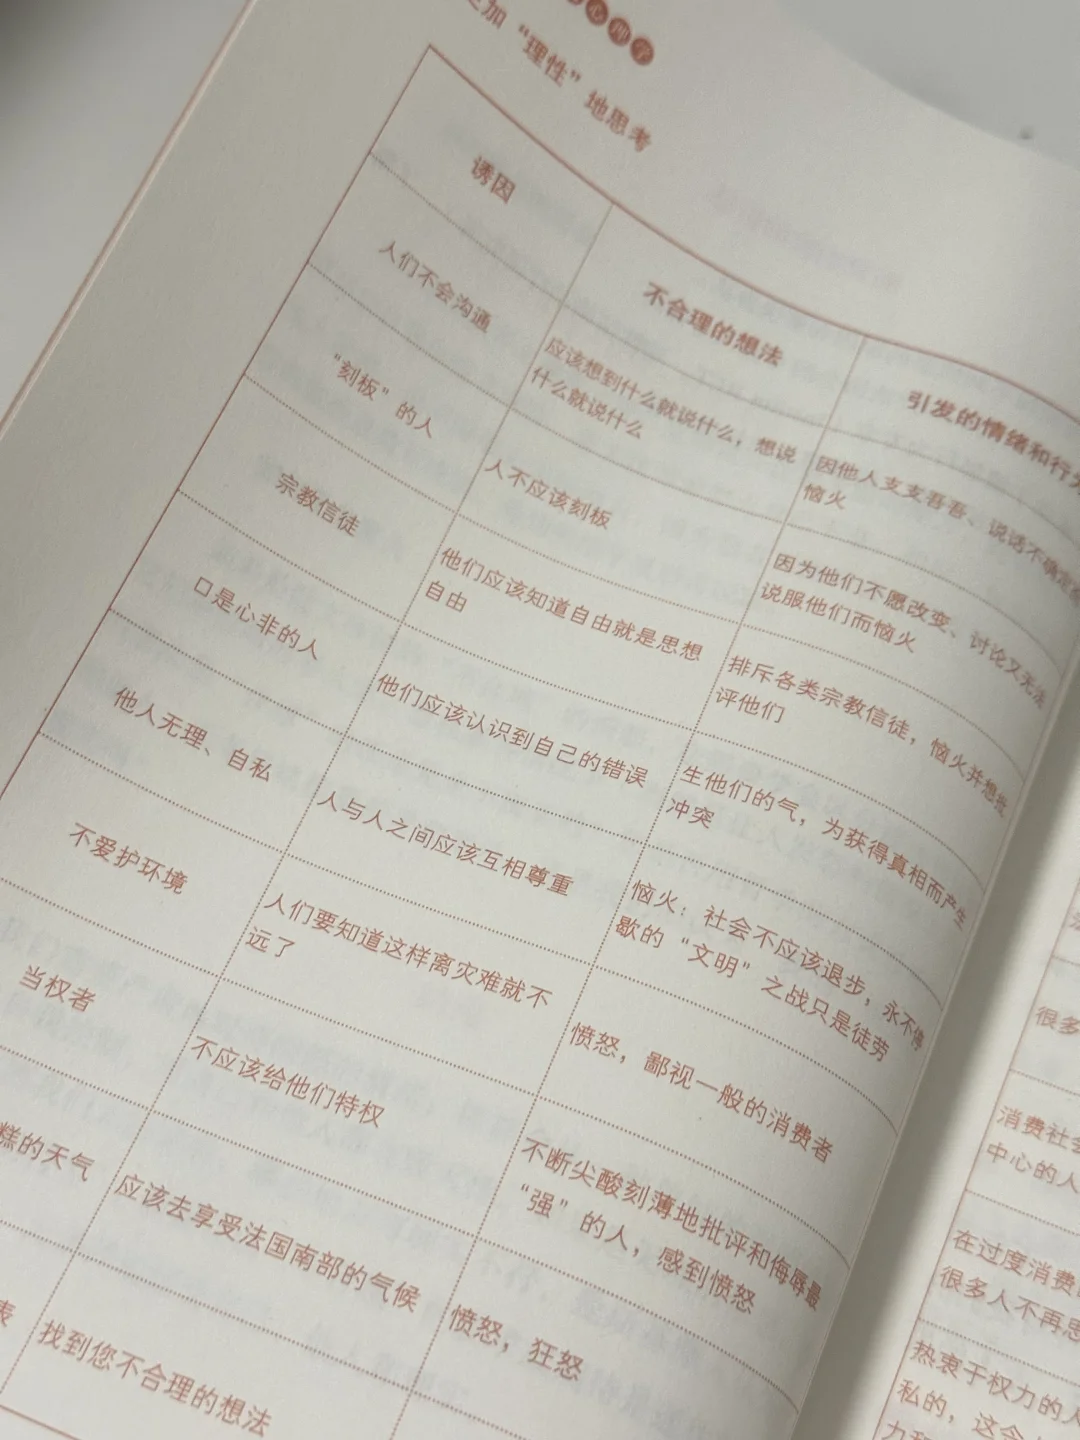 心理学
加“理性”地思考
诱因
不合理的想法
引发的情绪和行为
人们不会沟通
应该想到什么就说什么，想说
什么就说什么
因他人支支吾吾、说话不确定
恼火
“刻板”的人
人不应该刻板
因为他们不愿改变、讨论又无法
说服他们而恼火
宗教信徒
他们应该知道自由就是思想
自由
排斥各类宗教信徒，恼火并想批
评他们
口是心非的人
他们应该认识到自己的错误
生他们的气，为获得真相而产生
冲突
他人无理、自私
人与人之间应该互相尊重
恼火：社会不应该退步，永不停
歇的“文明”之战只是徒劳
不爱护环境
人们要知道这样离灾难就不
远了
愤怒，鄙视一般的消费者
当权者
不应该给他们特权
不断尖酸刻薄地批评和侮辱最
“强”的人，感到愤怒
糕的天气
应该去享受法国南部的气候
愤怒，狂怒
表
找到您不合理的想法
很多
消费社会
中心的人
在过度消费
很多人不再思
热衷于权力的人
私的，这会